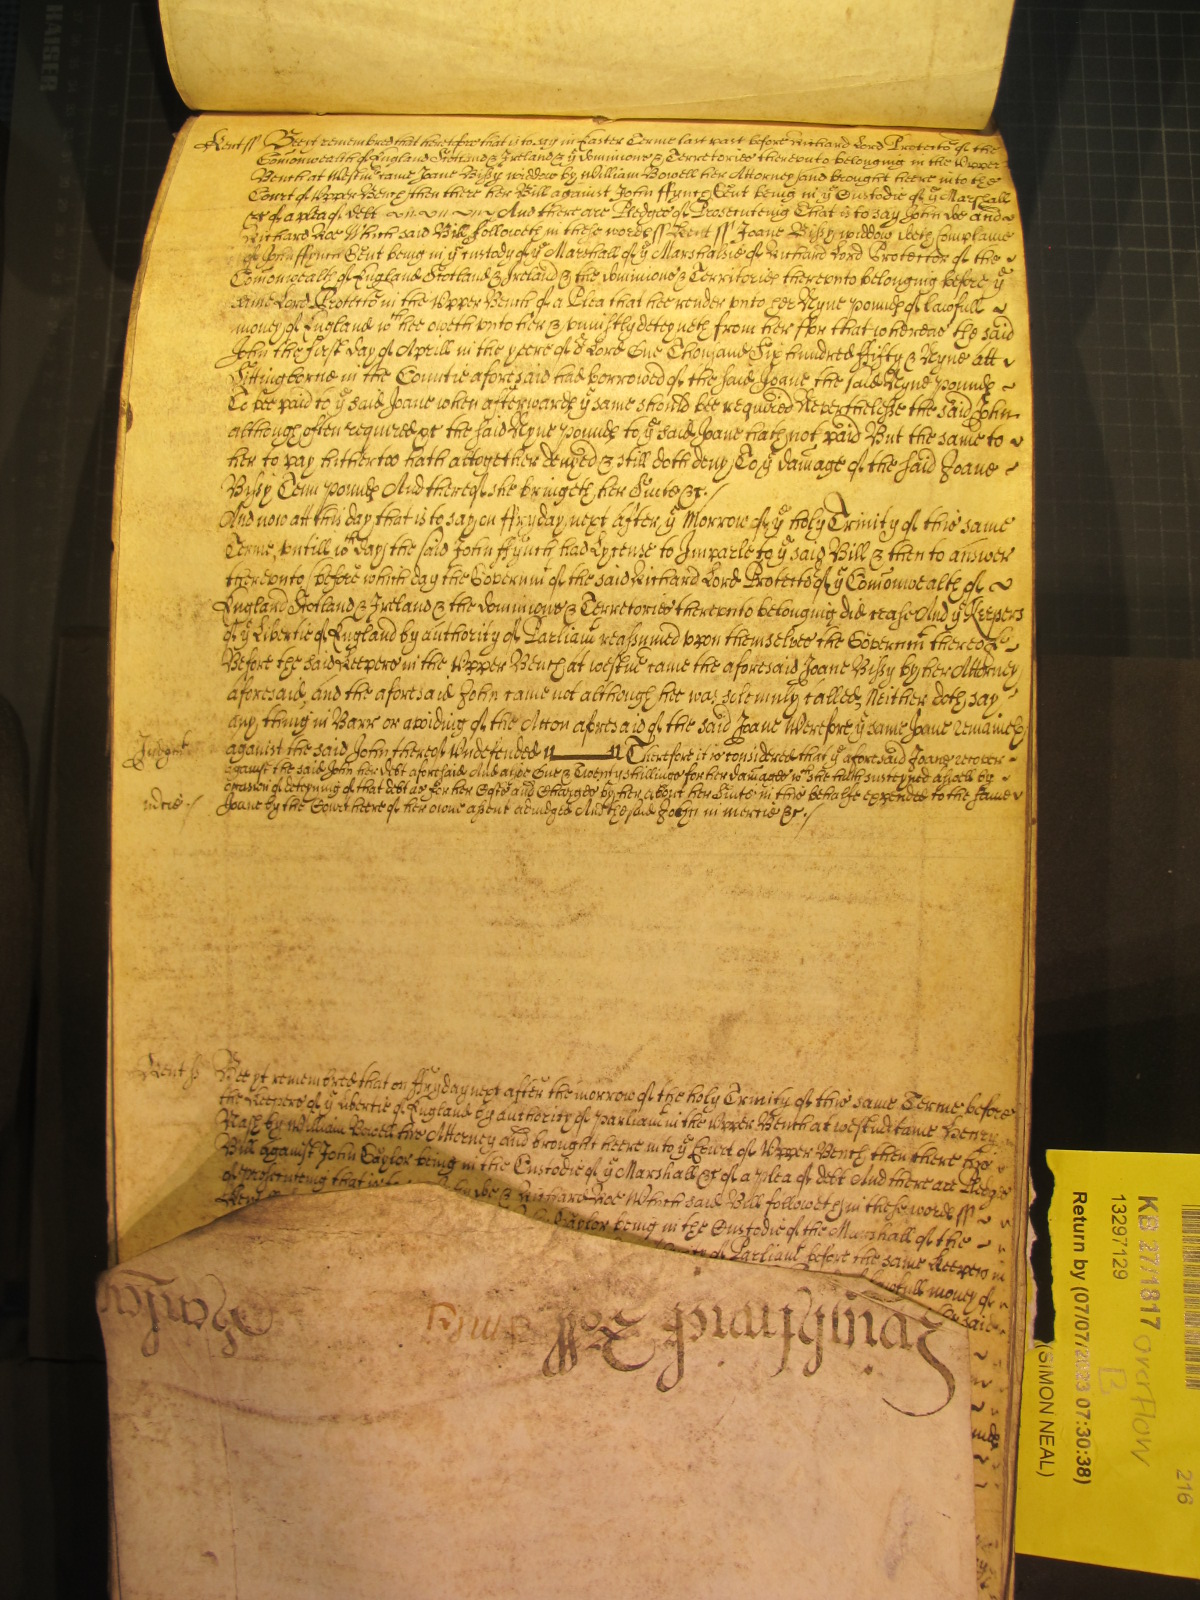 Kent ss Bee yt remembred that heretofore that is to say in Easter Terme last past before Richard Lord Protector of the
Comonwealth of England Scotland & Ireland & ye dominions & Terretories thereunto belonging in the Upper
Bench at Westmr came Joane Bissy widdow by William Bowell her Attorney and brought heere into the
Court of Upper Bench then there her Bill against John ffynch Gent being in ye Custodie of ye Marshall
&c of a plea of debt And there are Pledges of Prosecuteing That is to say John Doe and
Richard Roe Which said Bill followeth in these words ss Kent ss Joane Bissy widdow doth complaine
of John ffynch Gent being in ye custody of ye Marshall of ye Marshalsie of Richard Lord Protector of the
Comonwealth of England Scotland & Ireland & the dominions & Territories thereunto belonging before ye
same Lord Protector in the Upper Bench of a Plea that hee render unto her Nyne pounds of lawfull
money of England wch hee oweth unto her & uniustly deteyneth from her For that whereas the said
John the first day of Aprill in the yeere of or Lord One Thousand Six hundred ffifty & Nyne att
Sittingborne in the Countie aforesaid had borrowed of the said Joane the said Nyne pounds
To bee paid to ye said Joane when afterwards ye same should bee required Neverthelesse the said John
although often required &c the said Nyne pounds to ye said Joane hath not paid But the same to
her to pay hitherto hath altogether denyed & still doth deny To ye damage of the said Joane
Bissy Tenn pounds And thereof she bringeth her Suite &c.
And now att this day that is to say on ffryday next after ye Morrow of ye holy Trinity of this same
Terme untill wch day the said John ffynch had Lycense to Imparle to ye said Bill & then to answer
thereunto before which day the Governmt of the said Richard Lord Protector of ye Comonwealth of
England Scotland & Ireland & the dominions & Terretories thereunto belonging did cease And ye Keepers
of ye Libertie of England by authority of Parliamt reassumed upon themselves the Governmt thereof
Before the said Keepers in the Upper Bench at Westmr came the aforesaid Joane Bissy by her Attorney
aforesaid and the aforesaid John came not although hee was solemnly called Neither doth say
any thing in Barr or avoiding of the Accon aforesaid of the said Joane Wherefore ye same Joane remaineth
Judgmt
against the said John thereof Undefended Therefore it is considered that ye aforesaid Joane recover
against the said John her debt aforesaid And alsoe One & Twenty shillings for her damages wch she hath susteyned aswell by
occasion of deteyning of that debt as for her Costs and Charges by her about her Suite in this behalfe expended to the same
in mcie
Joane by the Court heere of her owne assent adiudged And the said John in mercie &c.
Kent ss Bee yt remembred that on ffryday next after the morrow of the holy Trinity of this same Terme before
the Keepers of ye Libertie of England by authority of Parliam in the Upper Bench at Westmr came Henry
Nash by William Bowell his Attorney and brought heere into ye Court of Upper Bench then there his
Bill against John Taylor being in the Custodie of ye Marshall &c of a plea of debt And there are Pledges
of prosecuteing that is to say John Doe & Richard Roe Which said Bill followeth in these words ss
Taylor being in the Custodie of the Marshall of the
of Parliamt before the same Keepers in
lawfull money of
said
KB 27/1817 overflow
13297129
B
Return by (07/07/2023 07:30:38)
(SIMON NEAL)
216
KAISER